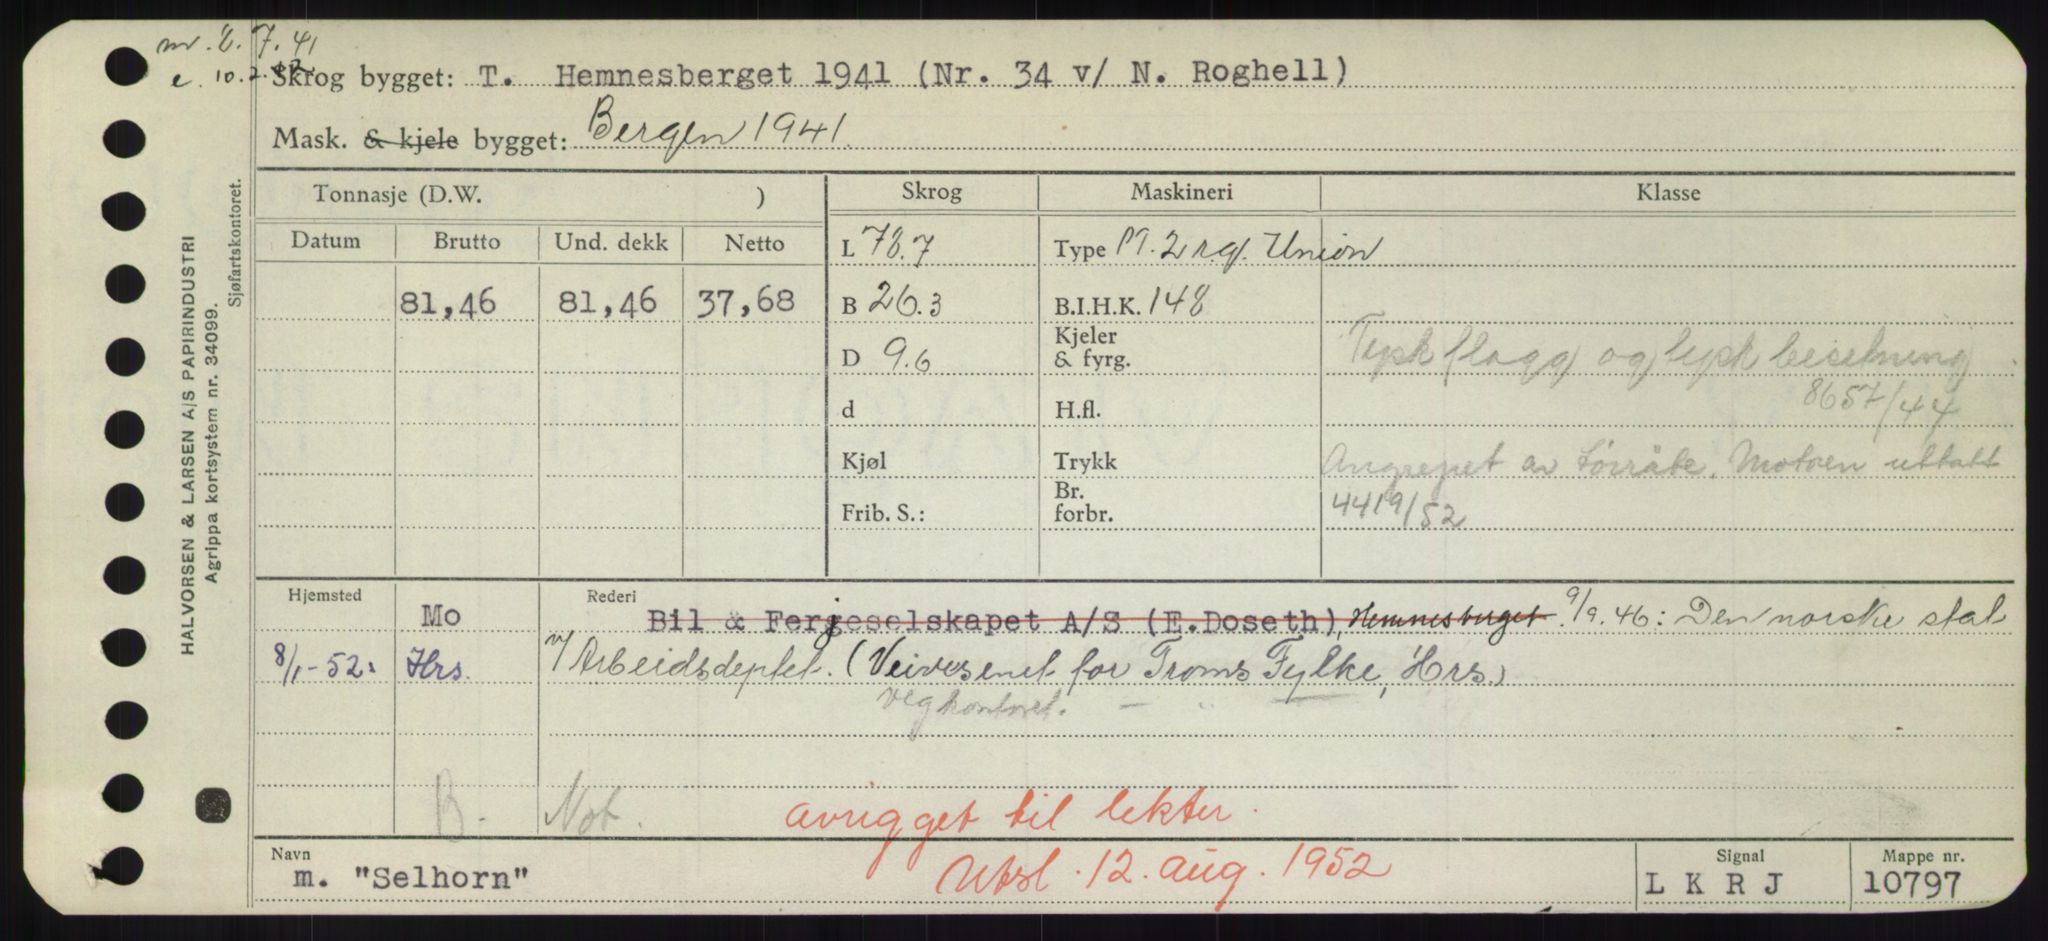 nr. 2.7.41
e. 10.2.42.
Skrog bygget: T. Hemnesberget 1941 (Nr. 34 v/ N. Roghell)
Mask. & kjele bygget: Bergen 1941.
Tonnasje (D.W. ) Skrog Maskineri Klasse
Datum Brutto Und. dekk Netto L 78.7 Type Union
81,46 81,46 37,68 B 26.3 B.I.H.K. 148
D 9.6 Kjeler & fyrg. Tysk flagg og tysk besetning
d H.fl. 8657/44
Kjøl Trykk Angrepet av tørråte. Motoren uttatt
Frib. S.: Br. forbr. 4419/52
Hjemsted Mo Rederi Bil & Fergeselskapet A/S (E.Doseth), Hemnesberget. 9/9.46: Den norske stat
8/1-52: Hrs. v/ Arbeidsdeptet. (Veivesenet for Troms Fylke, Hrs.)
Vegkontoret. — " —
B. Not. avrigget til lekter.
Navn m. "Selhorn" Utsl. 12. aug. 1952 Signal L K R J Mappe nr. 10797
HALVORSEN & LARSEN A/S PAPIRINDUSTRI
Agrippa kortsystem nr. 34099.
Sjøfartskontoret.